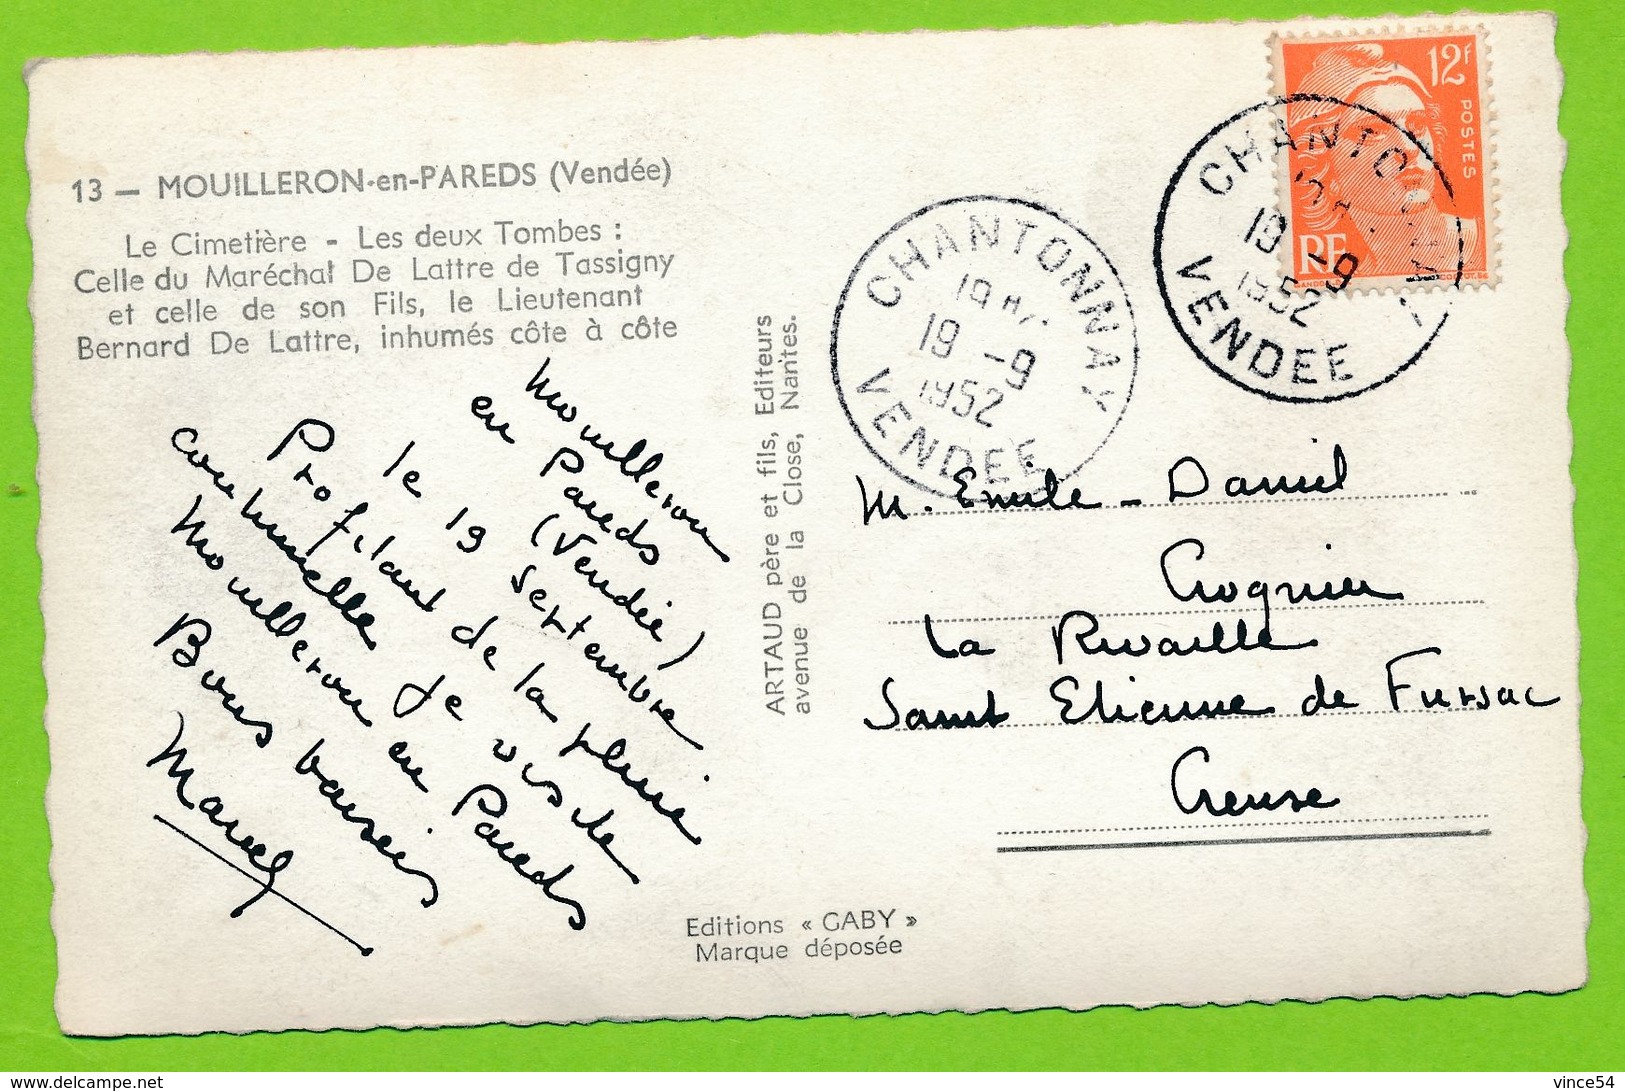 13 — MOUILLERON-en-PAREDS (Vendée)
Le Cimetière - Les deux Tombes :
Celle du Maréchal De Lattre de Tassigny
et celle de son Fils, le Lieutenant
Bernard De Lattre, inhumés côte à côte
Mouilleron
en Pareds
(Vendée)
le 19 septembre
Profitant de la pluie
continuelle je visite
Mouilleron en Pareds
Bons baisers
Marcel
ARTAUD père et fils, Editeurs
avenue de la Close, Nantes.
Editions « GABY »
Marque déposée
CHANTONNAY
19 H
19 -9
1952
VENDEE
12F
POSTES
RF
CHANTONNAY
19 -9
1952
VENDEE
M. Emile - Daniel
Crognier
La Rivaille
Saint Etienne de Fursac
Creuse
www.delcampe.net
vince54